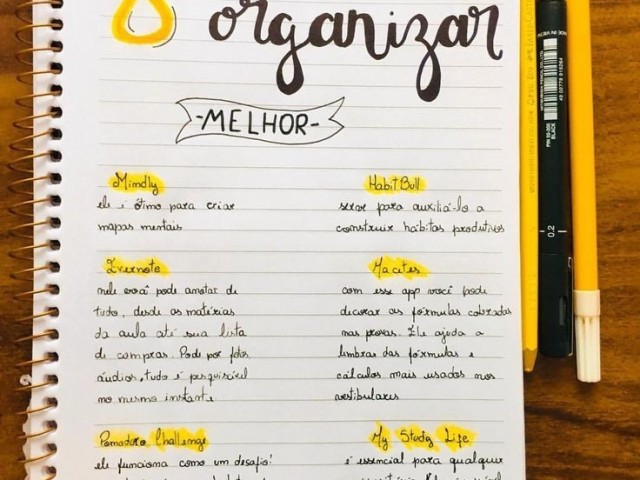 organizar
-MELHOR-
Mindly
ele é ótimo para criar
mapas mentais
HabitBull
serve para auxiliá-lo a
construir hábitos produtivos
Evernote
nele você pode anotar de
tudo, desde as matérias
da aula até sua lista
de compras. Pode por fotos
áudios, tudo é pesquisável
no mesmo instante
Macetes
com esse app você pode
decorar as fórmulas cobradas
nas provas. Ele ajuda a
lembrar das fórmulas e
cálculos mais usados nos
vestibulares
Pomodoro Challenge
ele funciona como um desafio!
My Study Life
é essencial para qualquer
0.2
BLACK